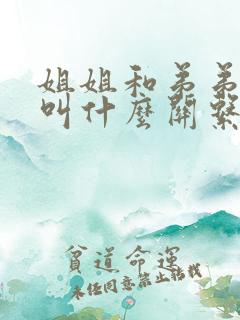 姐姐和弟弟
叫什麼關系
貧道命運
未经同意禁止转载